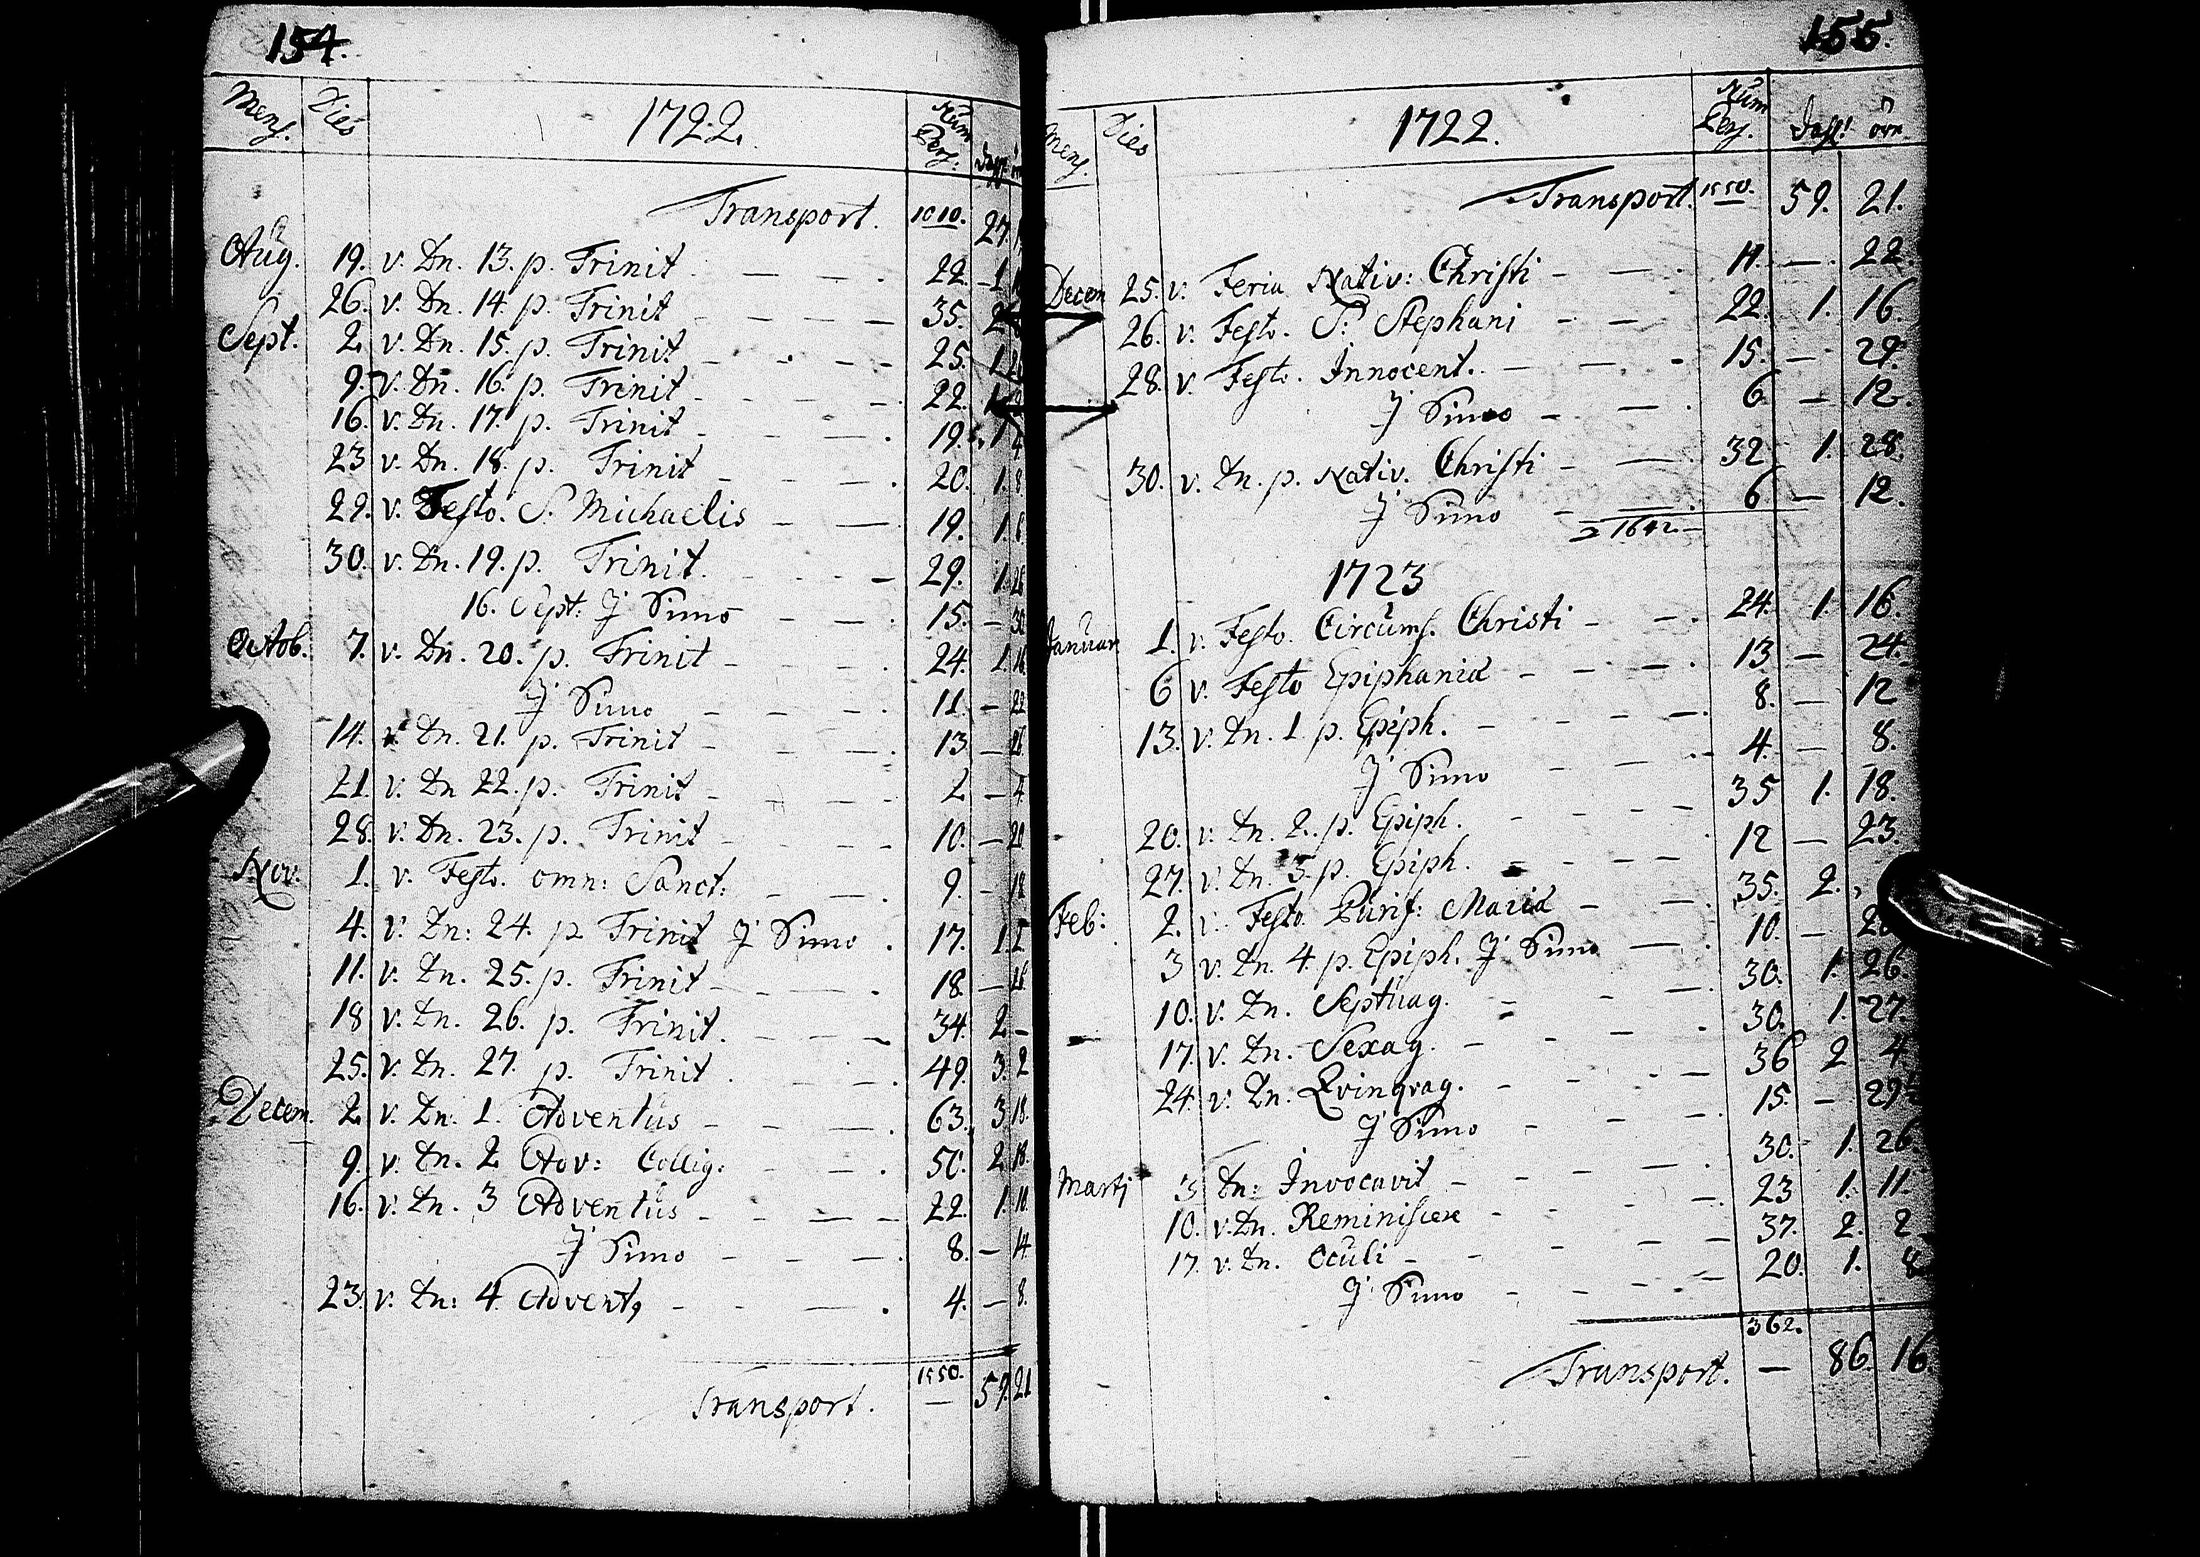 154.
Mens. Dies 1722. Num Pers: Daͤlr
Transport. 1010. 27
Aug. 19. v. Dn. 13. p. Trinit — — . 22 1
26. v. Dn. 14. p. Trinit — — — — 35. 2
Sept. 2 v. Dn. 15. p. Trinit — . — — 25. 1
9. v. Dn. 16. p. Trinit — — — — 22. 1
16. v. Dn. 17. p. Trinit — — — . 19. 1 4
23 v. Dn. 18. p. Trinit — — — . 20. 1. 8.
29. v. Festo. S. Michaelis — — 19. 1. 6
30. v. Dn. 19. p. Trinit. — — — 29. 1. 26
16. Sept. J Simo — — . 15. — 30
Octob. 7. v. Dn. 20. p. Trinit — — . 24. 1. 16
J Simo — — — . 11. — 22
14. v. Dn. 21. p. Trinit — — — . 13 — 26
21. v. Dn 22. p. Trinit — — — . 2 — 4.
28. v. Dn. 23. p. Trinit — — — — 10. — 20
Nov. 1. v. Festo. omn: Sanct: — — . 9. — 18
4. v. Dn: 24. p Trinit J Simo . 17. 1. 2
11. v. Dn. 25. p. Trinit — — — . 18. — 26
18 v. Dn. 26. p. Trinit. — — — 34. 2 —
25. v. Dn. 27. p. Trinit . — — . 49. 3. 2
Decem. 2 v. Dn: 1. Adventus — — — . 63. 3. 18.
9. v. Dn. 2 Adv: Collig: — — . 50. 2 18.
16. v. Dn. 3 Adventus — — — — 22. 1. 10.
J Simo — — — . 8. — 14
23. v. Dn: 4 Advent9 — — . 4. — 8.
1550.
Transport. — 59. 21
155.
Mens. Dies 1722. Num Pers. Daͤlr öre.
Transport. 1550. 59. 21.
Decem 25. v. Feria Nativ: Christi — — . 11. — 22
26. v. Festo. S: Stephani — — 22. 1. 16.
28. v. Festo. Innocent. — — - 15. — 29.
J Simo — — . 6 — 12.
30. v. Dn. p. Nativ. Christi — — . 32 1. 28.
J Simo — — . 6 — 12.
1642.
1723
Januar 1. v. Festo. Circums. Christi — — . 24. 1. 16.
6 v. Festo Epiphaniæ — — — . 13 — 24.
13. v. Dn. 1. p. Epiph. — — — . 8. — 12
J Simo — — — . 4. — 8.
20. v. Dn. 2. p. Epiph. — — — — 35 1. 18.
27. v. Dn. 3. p. Epiph. — — — 12 — 23.
Feb: 2. v. Festo Purif: Mariæ — — 35. 2.
3 v. Dn. 4. p. Epiph. J Simo — . 10. —
10. v. Dn. Septuag. — — — 30. 1. 26.
17. v. Dn. Sexag. — — — . 30. 1. 27.
24. v. Dn: Qvinqvag. — — — — 36 2 4
J Simo — — — . 15. — 29
Martj 3 Dn: Invocavit — — — 30. 1. 26.
10. v. Dn. Reminiscere — — — 23 1. 11.
17. v. Dn. Oculi — — — — 37. 2. 2
J Simo — — — — 20. 1. 8
362.
Transport. — 86. 16.